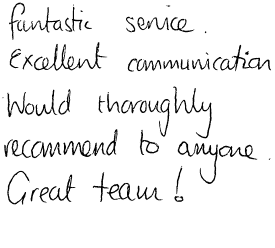 fantastic service.
Excellent communication
Would thoroughly
recommend to anyone.
Great team!